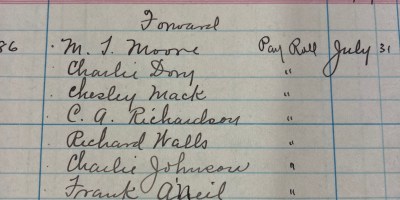 Forward
86 M. T. Moore Pay Roll July 31
Charlie Dory "
Chesley Mack "
C. A. Richardson "
Richard Walls "
Charlie Johnson "
Frank O'Neil "